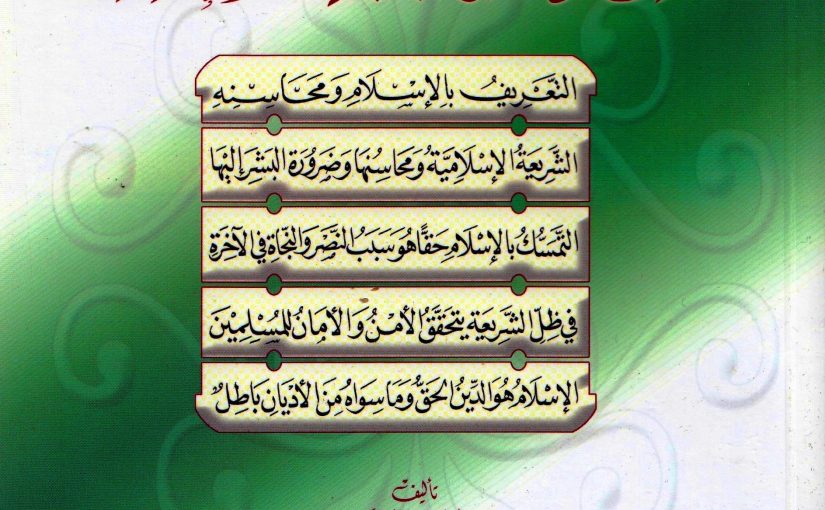 التَّعْرِيفُ بِالإِسْلَامِ وَمَحَاسِنِهِ
الشَّرِيعَةُ الإِسْلَامِيَّةُ وَمَحَاسِنُهَا وَضَرُورَةُ البَشَرِ إِلَيْهَا
التَّمَسُّكُ بِالإِسْلَامِ حَقًّا هُوَ سَبَبُ النَّصْرِ وَالنَّجَاةِ فِي الآخِرَةِ
فِي ظِلِّ الشَّرِيعَةِ يَتَحَقَّقُ الأَمْنُ وَالأَمَانُ لِلْمُسْلِمِيْنَ
الإِسْلَامُ هُوَ الدِّينُ الحَقُّ وَمَا سِوَاهُ مِنَ الأَدْيَانِ بَاطِلٌ
تأليف